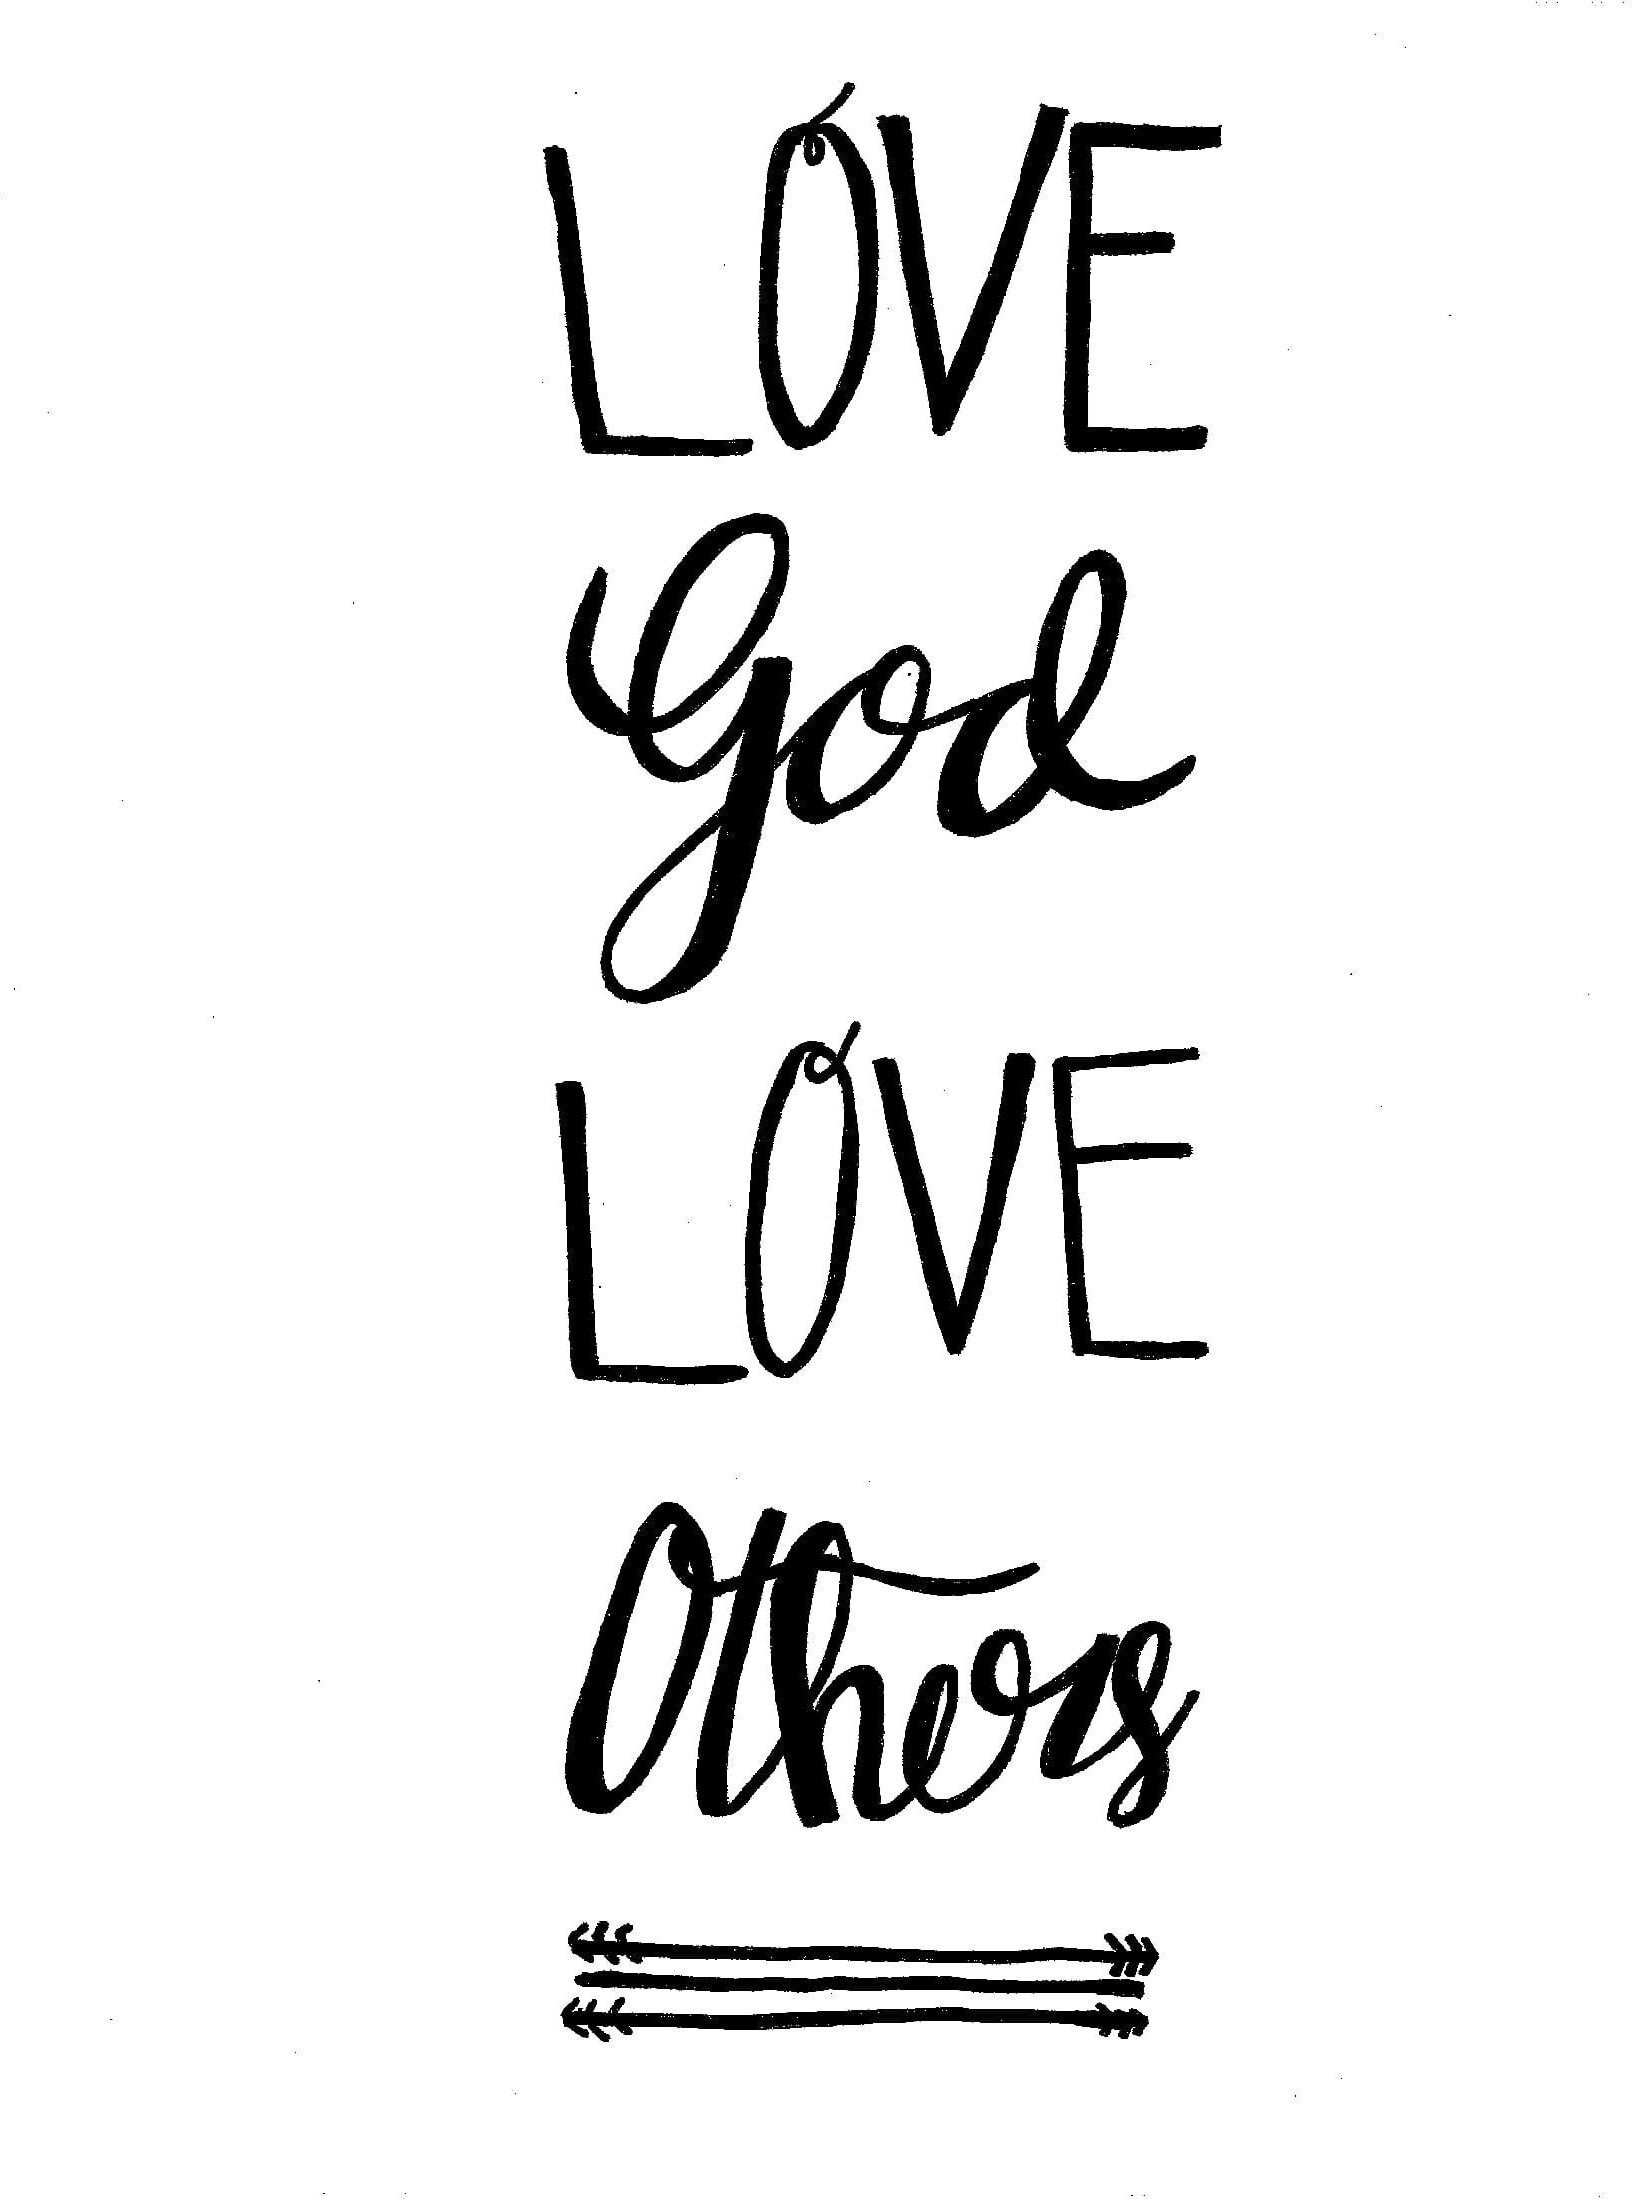 LOVE
God
LOVE
Others